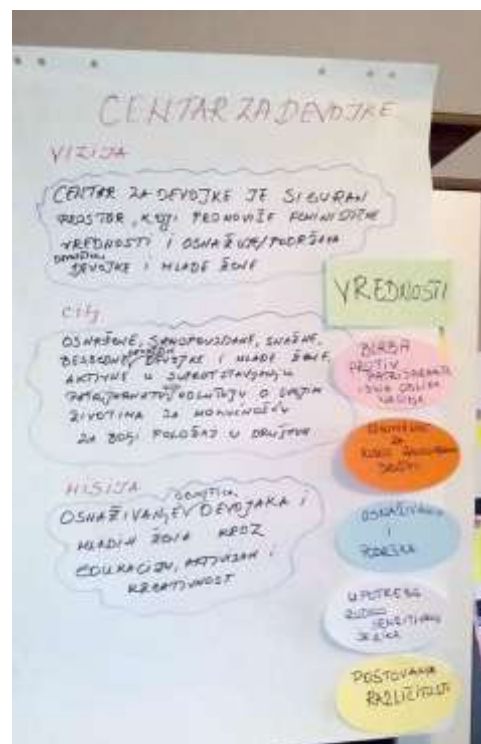 CENTAR ZA DEVOJKE
VIZIJA
CENTAR ZA DEVOJKE JE SIGURAN
PROSTOR, KOJI PROMOVIŠE FEMINISTIČKE
VREDNOSTI I OSNAŽUJE/PODRŽAVA
DEVOJKE I MLADE ŽENE
CILJ
OSNAŽENE, SAMOPOUZDANE, SNAŽNE,
DEVOJKE I MLADE ŽENE,
AKTIVNE U SUPROTSTAVLJANJU
PATRIJARHATU, ODLUČUJU O SVOJIM
ŽIVOTIMA ZA
ZA BOLJI POLOŽAJ U DRUŠTVU
MISIJA
OSNAŽIVANJE DEVOJAKA I
MLADIH ŽENA KROZ
EDUKACIJU, AKTIVIZAM I
KREATIVNOST
VREDNOSTI
BORBA
PROTIV
PATRIJARHATA
I SVIH OBLIKA
NASILJA
ZA
OSNAŽIVANJE
I
PODRŠKA
UPOTREBA
RODNO
SENZITIVNOG
JEZIKA
POŠTOVANJE
RAZLIČITOSTI